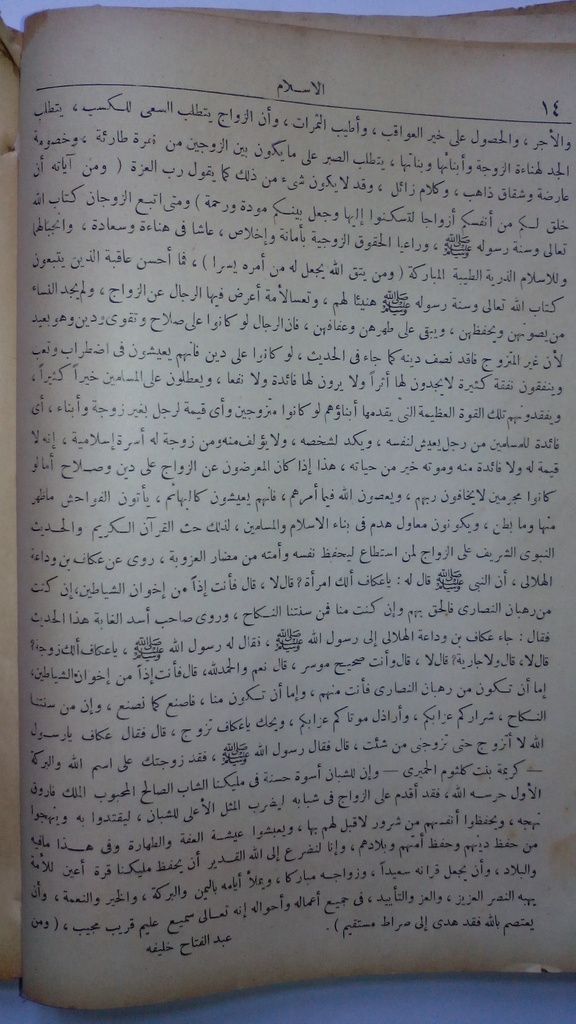 ١٤
الاسلام
والأجر ، والحصول على خير العواقب ، وأطيب الثمرات ، وأن الزواج يتطلب السعى للكسب ، يتطلب
الجد لهناءة الزوجة وأبنائها وبناتها ، يتطلب الصبر على ما يكون بين الزوجين من نمرة طارئة ، وخصومة
عارضة وشقاق ذاهب ، وكلام زائل ، وقد لا يكون شىء من ذلك كما يقول رب العزة ( ومن آياته أن
خلق لكم من أنفسكم أزواجا لتسكنوا إليها وجعل بينكم مودة ورحمة ) ومتى اتبع الزوجان كتاب الله
تعالى وسنة رسوله ﷺ ، وراعيا الحقوق الزوجية بأمانة وإخلاص ، عاشا فى هناءة وسعادة ، وانجبا لهما
وللاسلام الذرية الطيبة المباركة ( ومن يتق الله يجعل له من أمره يسرا ) ، فما أحسن عاقبة الذين يتبعون
كتاب الله تعالى وسنة رسوله ﷺ هنيئا لهم ، وتعسا لأمة أعرض فيها الرجال عن الزواج ، ولم يجد النساء
من يصونهن ويحفظهن ، ويبقى على طهرهن وعفافهن ، فان الرجال لو كانوا على صلاح وتقوى ودين وهو بعيد
لأن غير المتزوج فاقد نصف دينه كما جاء فى الحديث ، لو كانوا على دين فانهم يعيشون فى اضطراب وتعب
وينفقون نفقة كثيرة لا يجدون لها أثراً ولا يرون لها فائدة ولا نفعا ، ويعطلون على المسلمين خيراً كثيراً ،
ويفقدونهم تلك القوة العظيمة التى يقدمها أبناؤهم لو كانوا متزوجين وأى قيمة لرجل بغير زوجة وأبناء ، أى
فائدة للمسلمين من رجل يعيش لنفسه ، ويكد لشخصه ، ولا يؤلف منه ومن زوجة له أسرة إسلامية ، إنه لا
قيمة له ولا فائدة منه وموته خير من حياته ، هذا إذا كان المعرضون عن الزواج على دين وصلاح أما لو
كانوا مجرمين لا يخافون ربهم ، ويعصون الله فيما أمرهم ، فانهم يعيشون كالبهائم ، يأتون الفواحش ما ظهر
منها وما بطن ، ويكونون معاول هدم فى بناء الاسلام والمسلمين ، لذلك حث القرآن الكريم والحديث
النبوى الشريف على الزواج لمن استطاع ليحفظ نفسه وأمته من مضار العزوبة ، روى عن عكاف بن وداعة
الهلالى ، أن النبى ﷺ قال له : يا عكاف ألك امرأة ؟ قال لا ، قال فأنت إذاً من إخوان الشياطين ، إن كنت
من رهبان النصارى فالحق بهم وإن كنت منا فمن سنتنا النكاح ، وروى صاحب أسد الغابة هذا الحديث
فقال : جاء عكاف بن وداعة الهلالى إلى رسول الله ﷺ ، فقال له رسول الله ﷺ ، يا عكاف ألك زوجة ؟
قال لا ، قال ولا جارية ؟ قال لا ، قال وأنت صحيح موسر ، قال نعم والحمد لله ، قال فأنت إذاً من إخوان الشياطين ،
إما أن تكون من رهبان النصارى فأنت منهم ، وإما أن تكون منا ، فاصنع كما نصنع ، وإن من سنتنا
النكاح ، شراركم عزابكم ، وأراذل موتاكم عزابكم ، ويحك يا عكاف تزوج ، قال فقال عكاف يا رسول
الله لا أتزوج حتى تزوجنى من شئت ، قال فقال رسول الله ﷺ ، فقد زوجتك على اسم الله والبركة
— كريمة بنت كلثوم الحميرى — وإن للشبان أسوة حسنة فى مليكنا الشاب الصالح المحبوب الملك فاروق
الأول حرسه الله ، فقد أقدم على الزواج فى شبابه ليضرب المثل الأعلى للشبان ، ليقتدوا به وينهجوا
نهجه ، ويحفظوا أنفسهم من شرور لا قبل لهم بها ، ويعيشوا عيشة العفة والطهارة وفى هذا ما فيه
من حفظ دينهم وحفظ أمتهم وبلادهم ، وإنا لنضرع إلى الله القدير أن يحفظ مليكنا قرة أعين للأمة
والبلاد ، وأن يجعل قرانه سعيداً ، وزواجه مباركا ، ويملأ أيامه باليمن والبركة ، والخير والنعمة ، وأن
يهبه النصر العزيز ، والعز والتأييد ، فى جميع أعماله وأحواله إنه تعالى سميع عليم قريب مجيب ، ( ومن
يعتصم بالله فقد هدى إلى صراط مستقيم ) .
عبد الفتاح خليفه